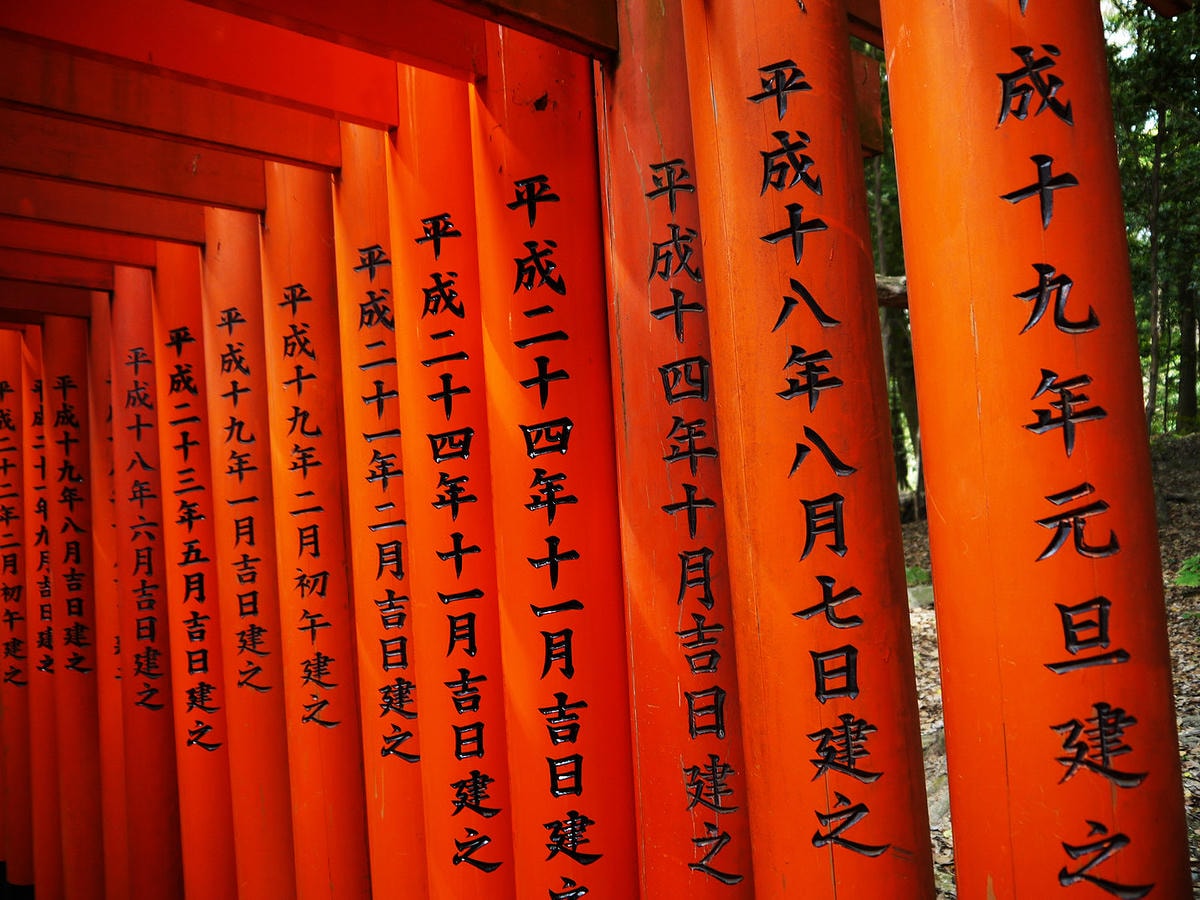 成十九年元旦建之
平成十八年八月七日建之
平成十四年十月吉日建之
平成二十四年十一月吉日建之
平成二十四年十一月吉日建之
平成二十一年二月吉日建之
平成十九年二月初午建之
平成十九年一月吉日建之
平成二十三年五月吉日建之
平成十八年六月吉日建之
平成十九年八月吉日建之
平成二十一年九月吉日建之
平成二十二年二月初午建之